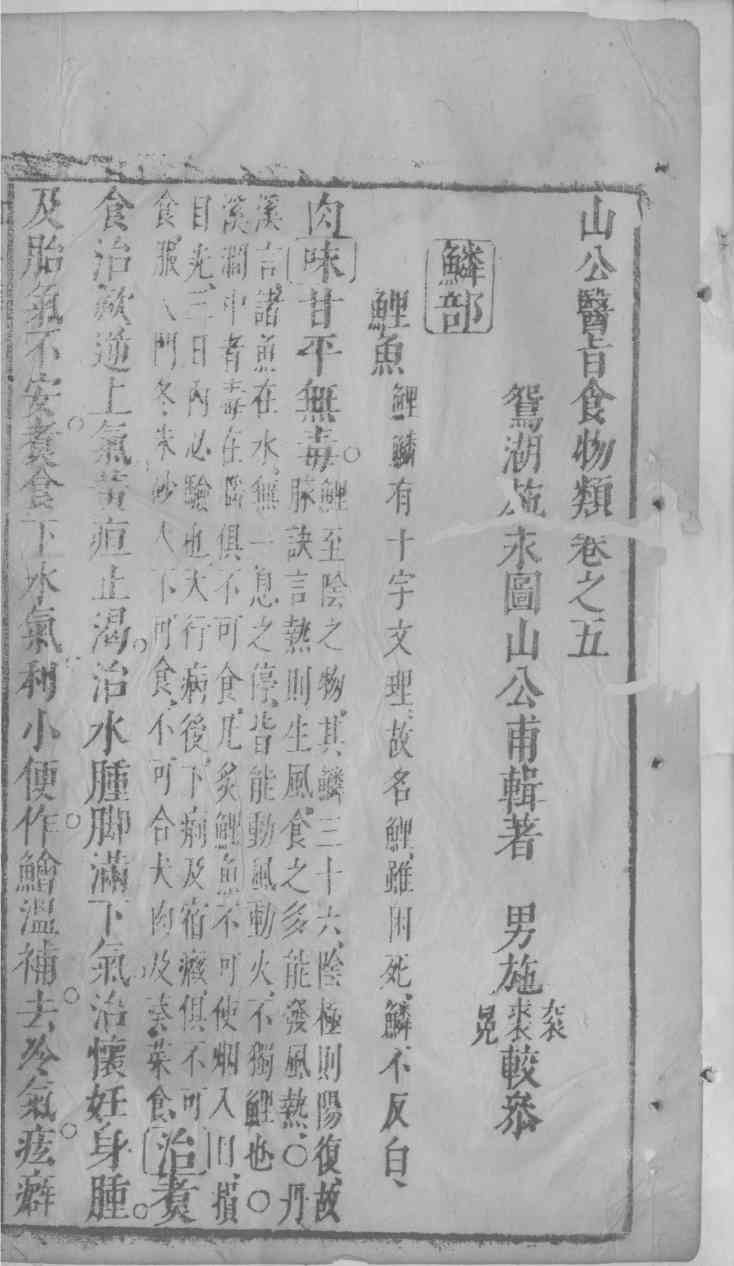 山公醫旨食物類卷之五
鴛湖施永圖山公甫輯著　男施
袈裘晃
較叅
鱗部
鯉魚
鯉鱗有十字文理、故名鯉、雖困死、鱗不反白、
肉味甘平無毒○
鯉至陰之物、其鱗三十六、陰極則陽復、故
脉訣言熱則生風、食之多能發風熱、○丹
溪言諸魚在水、無一息之停、皆能動風動火、不獨鯉也○
溪澗中者毒在腦俱不可食、凡炙鯉魚不可使烟入目、損
目光、三日內必驗也、天行病後、下痢及宿癥、俱不可
食、服天門冬朱砂人不可食、不可合犬肉及葵菜食、
治煮
食治欬逆上氣黃疸止渴。治水腫脚滿下氣治懷妊身腫。
及胎氣不安。煮食下水氣利小便。作鱠溫補。去冷氣。痃癖